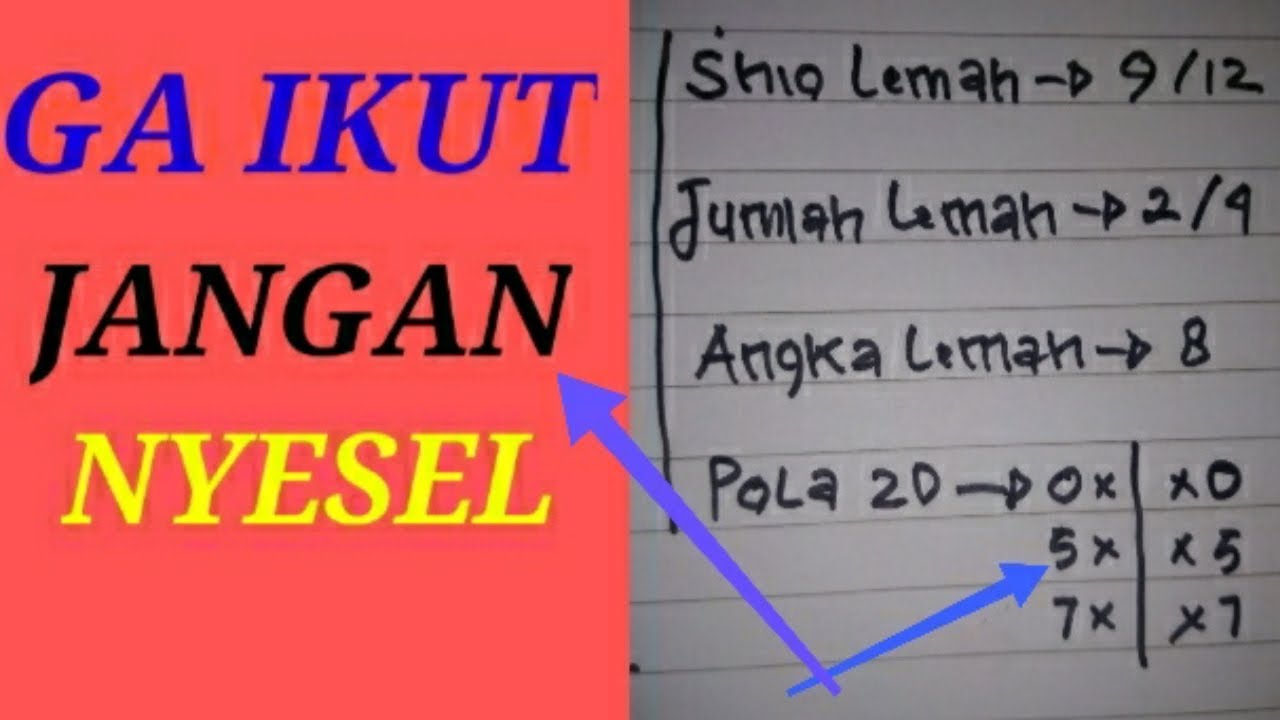 GA IKUT
JANGAN
NYESEL
Shio Lemah → 9/12
Jumlah Lemah → 2/4
Angka Lemah → 8
Pola 2D → 0x | x0
5x | x5
7x | x7